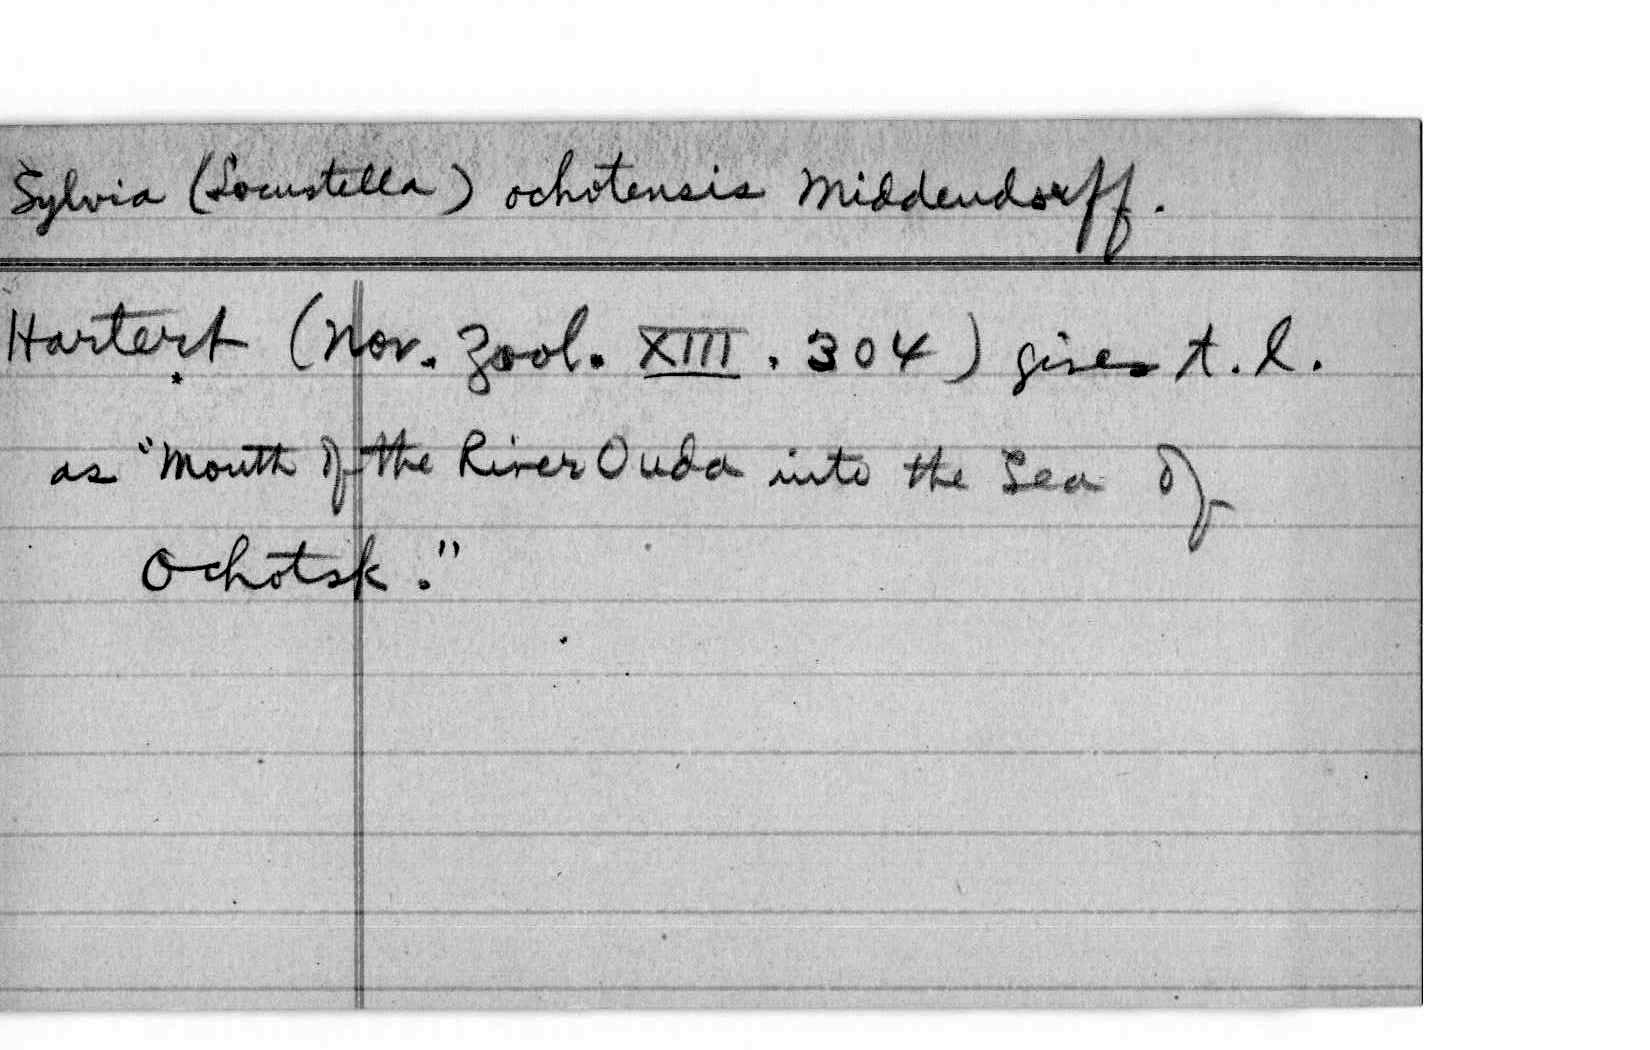 Sylvia (Locustella) ochotensis Middendorff.
Hartert (Nov. Zool. XIII. 304) gives t.l.
as "Mouth of the River Ouda into the Sea of
Ochotsk."